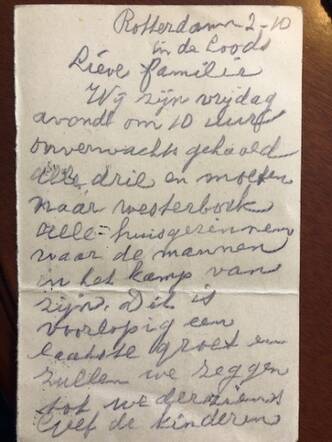 Rotterdam 2-10
in de Loods
Lieve familie
Wij zijn vrijdag
avond om 10 uur
onverwachts gehaald
alle drie en moeten
naar westerbork
alle huisgezinnen
waar de mannen
in het kamp van
zijn. Dit is
voorlopig een
laatste groet en
zullen we zeggen
tot weder ziens
Geef de kinderen